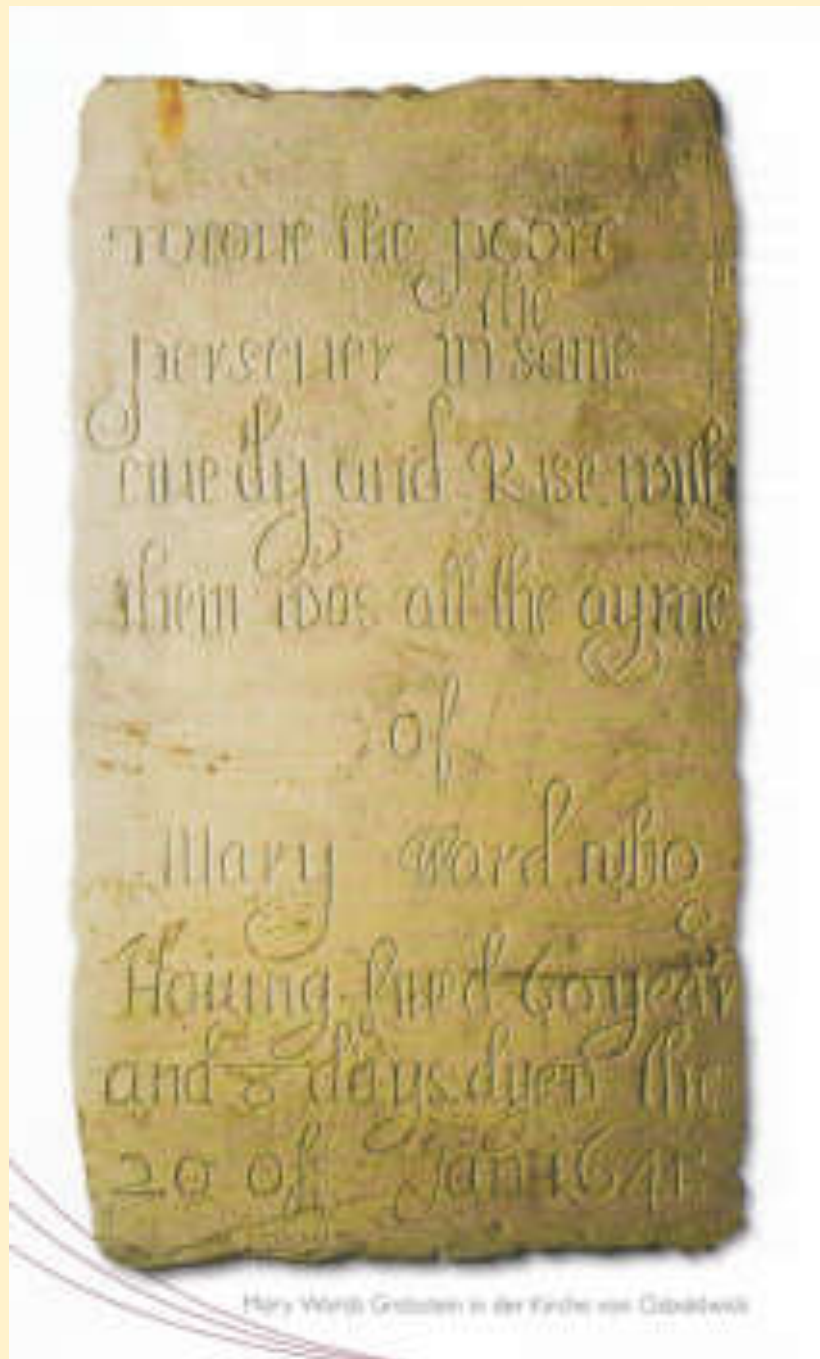 To love the poore
the
persever in same
live dy and Rise with
them was all the ayme
of
Mary Ward who
Having lived 60 years
and 8 days dyed the
20 of Jan 1641
Mary Wards Grabstein in der Kirche von Osbaldwick